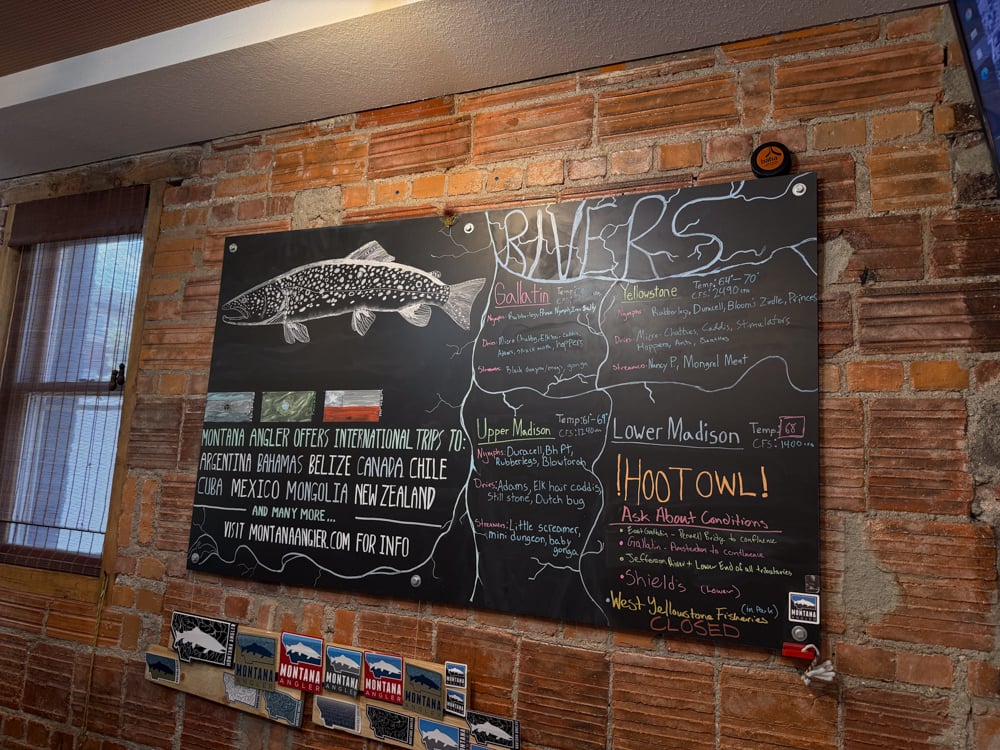 RIVERS
Gallatin Temp:
Nymphs: Rubberlegs, Prince Nymph,
Dries: Micro Chubby, Elk hair caddis,
Adams, spruce moth, hoppers
Streamers: Black dungeon/envy, gonga
Yellowstone Temp: 64°-70°
CFS: 2490
Nymphs: Rubberlegs, Duracell, Bloom's Zirdle, Princes
Dries: Micro-Chubbies, Caddis, Stimulators
Hoppers, Ants,
Streamers: Nancy P, Mongrel Meat
MONTANA ANGLER OFFERS INTERNATIONAL TRIPS TO:
ARGENTINA BAHAMAS BELIZE CANADA CHILE
CUBA MEXICO MONGOLIA NEW ZEALAND
AND MANY MORE...
VISIT MONTANAANGIER.COM FOR INFO
Upper Madison Temp: 61°-69°
CFS: 1240
Nymphs: Duracell, Bh Pt,
Rubberlegs, Blowtorch
Dries: Adams, Elk hair caddis,
Still stone, Dutch bug
Streamers: Little screamer,
mini dungeon, baby
gonga
Lower Madison Temp: 68°
CFS: 1400
!HOOT OWL!
Ask About Conditions
• East Gallatin - Penwell Bridge to confluence
• Gallatin - Amsterdam to confluence
• Jefferson River + Lower End of all tributaries
• Shield's (Lower)
West Yellowstone Fisheries (in Park)
CLOSED
MONTANA
MONTANA
MONTANA
ANGLER
MONTANA
ANGLER
MONTANA
ANGLER
MONTANA
MONTANA